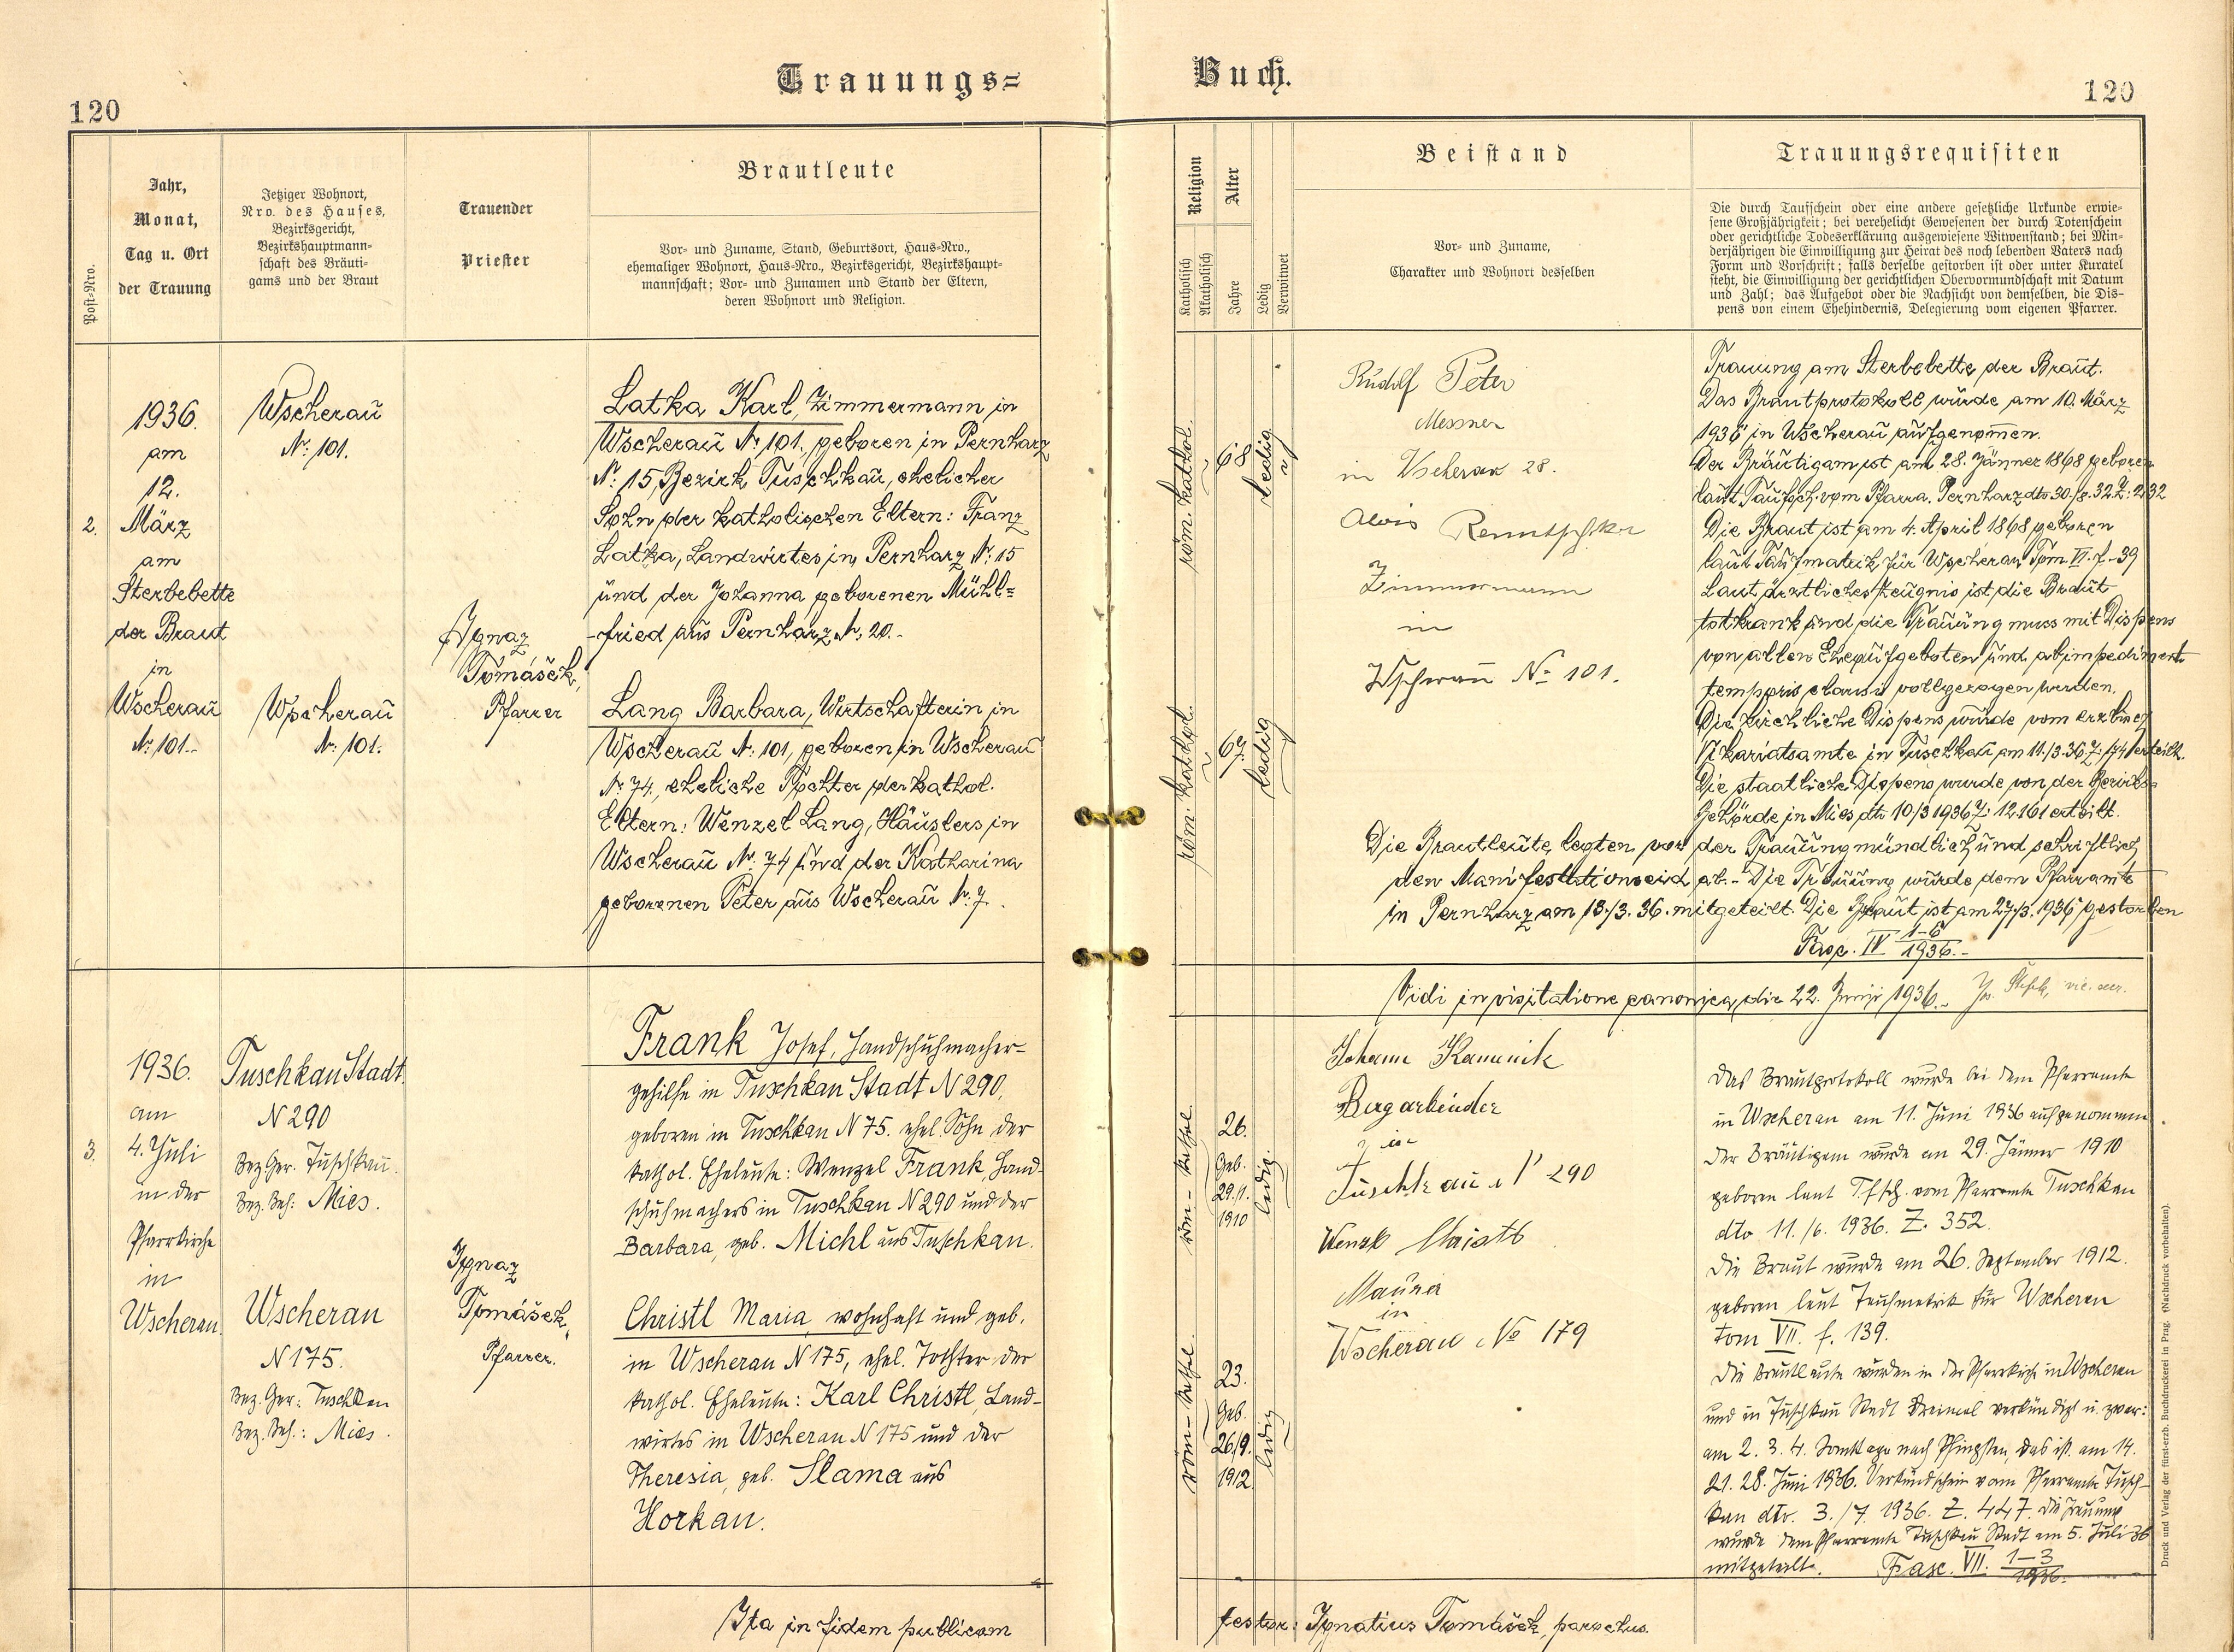 Trauungs=
Buch.
120
120
Post-Nro.
Jahr,
Monat,
Tag u. Ort
der Trauung
Jetziger Wohnort,
Nro. des Hauses,
Bezirksgericht,
Bezirkshauptmann-
schaft des Bräuti-
gams und der Braut
Trauender
Priester
Brautleute
Vor- und Zuname, Stand, Geburtsort, Haus-Nro.,
ehemaliger Wohnort, Haus-Nro., Bezirksgericht, Bezirkshaupt-
mannschaft; Vor- und Zunamen und Stand der Eltern,
deren Wohnort und Religion.
Religion
Katholisch
Akatholisch
Alter
Jahre
Ledig
Verwitwet
Beistand
Vor- und Zuname,
Charakter und Wohnort desselben
Trauungsrequisiten
Die durch Taufschein oder eine andere gesetzliche Urkunde erwie-
sene Großjährigkeit; bei verehelicht Gewesenen der durch Totenschein
oder gerichtliche Todeserklärung ausgewiesene Witwenstand; bei Min-
derjährigen die Einwilligung zur Heirat des noch lebenden Vaters nach
Form und Vorschrift; falls derselbe gestorben ist oder unter Kuratel
steht, die Einwilligung der gerichtlichen Obervormundschaft mit Datum
und Zahl; das Aufgebot oder die Nachsicht von demselben, die Dis-
pens von einem Ehehindernis, Delegierung vom eigenen Pfarrer.
2.
1936.
am
12.
März
am
Sterbebette
der Braut
in
Wscherau
Nr. 101.
Wscherau
Nr. 101.
Wscherau
Nr. 101.
Ignaz
Tomášek,
Pfarrer
Latka Karl, Zimmermann in
Wscherau Nr. 101., geboren in Pernharz
Nr. 15, Bezirk Tuschkau, ehelicher
Sohn der katholischen Eltern: Franz
Latka, Landwirtes in Pernharz Nr. 15
und der Johanna geborenen Mühl=
fried aus Pernharz Nr. 20.-
Lang Barbara, Wirtschafterin in
Wscherau Nr. 101, geboren in Wscherau
Nr. 74, eheliche Tochter der kathol.
Eltern: Wenzel Lang, Häuslers in
Wscherau Nr. 74 und der Katharina
geborenen Peter aus Wscherau Nr. 7.
röm. kathol.
68
ledig
röm. kathol.
67
ledig
Rudolf Peter
Messner
in Wscherau 28.
Alois
Zimmermann
in
Wscherau No 101.
Trauung am Sterbebette der Braut.
Das Brautprotokoll wurde am 10. März
1936 in Wscherau aufgenommen.
Der Bräutigam ist am 28. Jänner 1868 geboren
laut Taufsch. vom Pfarra. Pernharz dto 30./8. 32 Z: 232
Die Braut ist am 4. April 1868 geboren
laut Taufmatrik für Wscherau Tom. VI. f. 39
Laut ärztliches Zeugnis ist die Braut
totkrank und die Trauung muss mit Dispens
von allen Eheaufgeboten und ab impedimento
temporis clausi vollzogen werden.
Die kirchliche Dispens wurde vom erzbisch
Vikariatsamte in Tuschkau am 11./3. 36 Z: 174 erteilt.
Die staatliche Dispens wurde von der Bezirks-
behörde in Mies dto 10/3 1936 Z: 12.161 erteilt.
Die Brautleute legten vor der Trauung mündlich und schriftlich
den Manifestationseid ab.- Die Trauung wurde dem Pfarramte
in Pernharz am 13./3. 36. mitgeteilt. Die Braut ist am 27./3. 1936 gestorben
Fasc. IV 1-6/1936.-
Vidi in visitatione canonica, die 22. Junii 1936.-
3.
1936.
am
4. Juli
in der
Pfarrkirche
in
Wscherau.
Tuschkau Stadt.
N 290
Bez. Ger. Tuschkau.
Bez. Beh: Mies.
Wscherau
N 175.
Bez. Ger: Tuschkau
Bez. Beh.: Mies.
Ignaz
Tomášek,
Pfarrer.
Frank Josef, Handschuhmacher-
gehilfe in Tuschkau Stadt N 290,
geboren in Tuschkau N 75. ehel. Sohn der
kathol. Eheleute: Wenzel Frank, Hand-
schuhmachers in Tuschkau N 290 und der
Barbara, geb. Michl aus Tuschkau.
Christl Maria, wohnhaft und geb.
in Wscherau N 175, ehel. Tochter der
kathol. Eheleute: Karl Christl, Land-
wirtes in Wscherau N 175 und der
Theresia, geb. Slama aus
Horkau.
röm-kathol.
26.
Geb.
29./1.
1910
ledig.
röm-kathol.
23.
Geb.
26/9.
1912
ledig
Johann Kamenik
Bergarbeider
in
Tuschkau N 290
Wenzl
Maurer
in
Wscherau No 179
Das Brautprotokoll wurde bei dem Pfarramte
in Wscherau am 11. Juni 1936 aufgenommen.
Der Bräutigam wurde am 29. Jänner 1910
geboren laut Tfsch. vom Pfarramte Tuschkau
dto 11./6. 1936. Z. 352.
Die Braut wurde am 26. September 1912.
geboren laut Taufmatrik für Wscherau
tom VII. f. 139.
Die Brautleute wurden in der Pfarrkirche in Wscherau
und in Tuschkau Stadt dreimal verkündigt u. zwar:
am 2. 3. 4. Sonntage nach Pfingsten, das ist am 14.
21. 28. Juni 1936. Verkündschein vom Pfarramte Tusch-
kau dto. 3./7. 1936. Z. 447. Die Trauung
wurde dem Pfarramte Tuschkau Stadt am 5. Juli 36
mitgeteilt. Fasc. VII. 1-3/1936.
Ita in fidem publicam
testor: Ignatius Tomášek, parochus.
Druck und Verlag der fürst-erzb. Buchdruckerei in Prag. (Nachdruck vorbehalten).